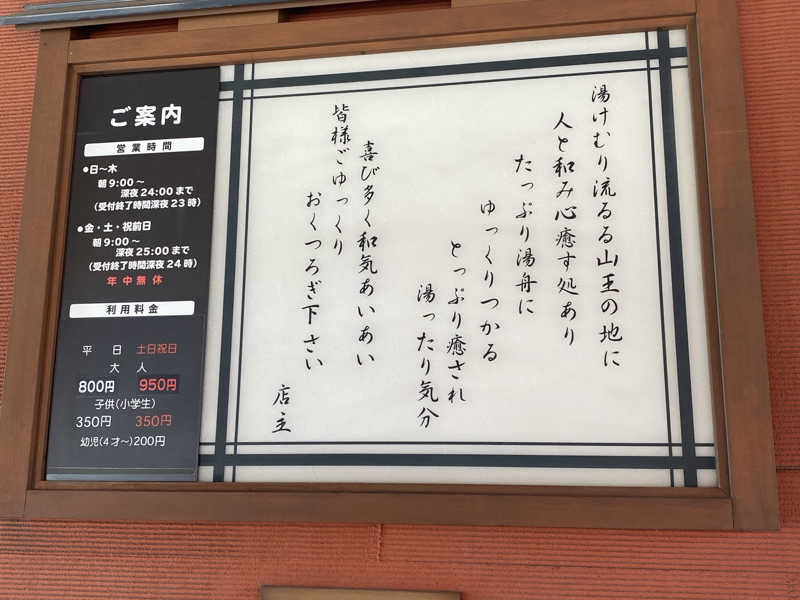 ご案内
営業時間
●日～木
朝9:00～
深夜24:00まで
(受付終了時間深夜23時)
●金・土・祝前日
朝9:00～
深夜25:00まで
(受付終了時間深夜24時)
年中無休
利用料金
平日 土日祝日
大人
800円 950円
子供(小学生)
350円 350円
幼児(4才～)200円
湯けむり流るる山王の地に
人と和み心癒す処あり
たっぷり湯舟に
ゆっくりつかる
とっぷり癒され
湯ったり気分
喜び多く和気あいあい
皆様ごゆっくり
おくつろぎ下さい
店主